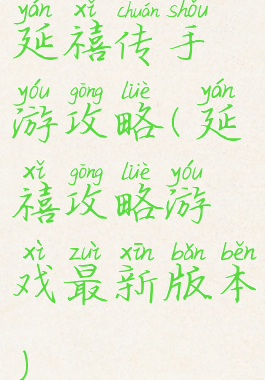 yán xǐ chuán shǒu
延禧传手
yóu gōng lüè yán
游攻略(延
xǐ gōng lüè yóu
禧攻略游
xì zuì xīn bǎn běn
戏最新版本
)